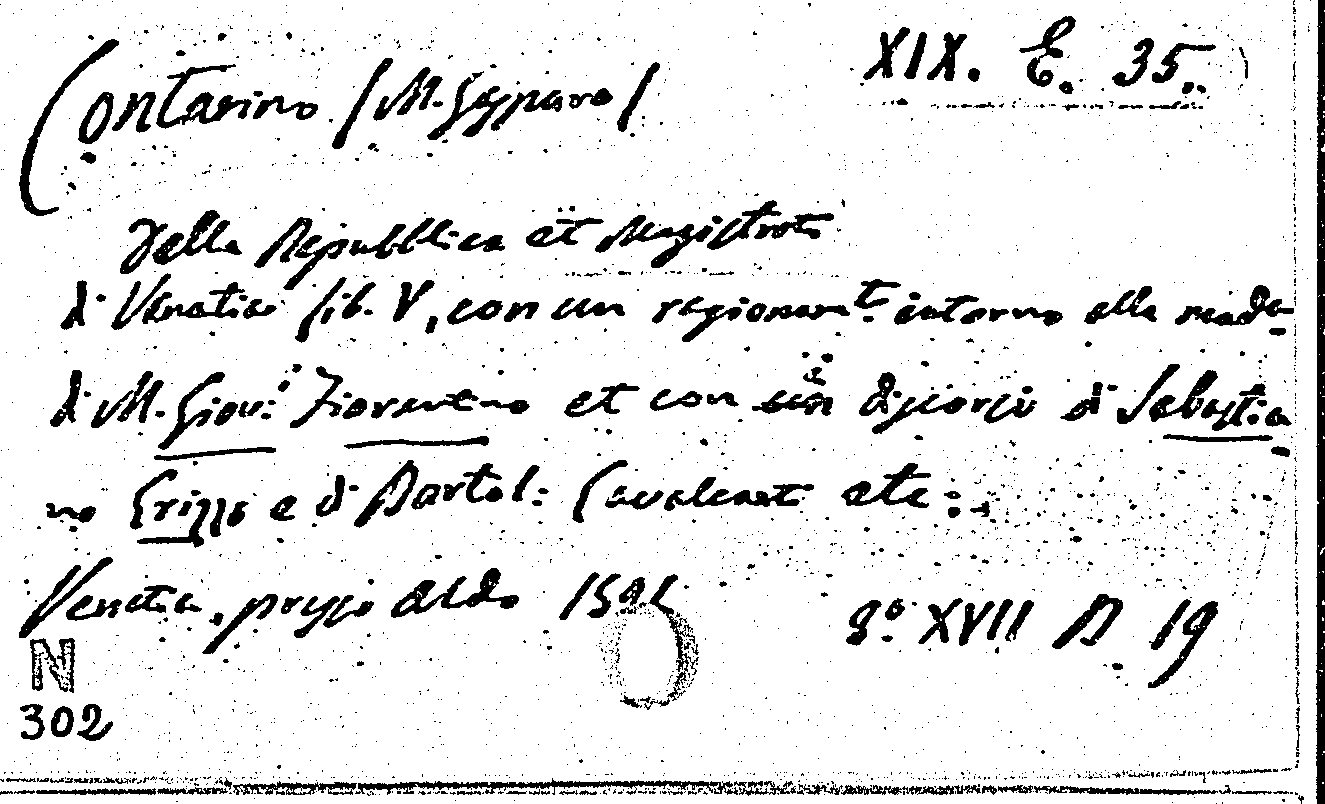 XIX. E. 35.
Contarino / M. Gasparo /
Della Republica et Magistrati
di Venetia lib. V, con un ragionam.to intorno alla mede-
di M. Giov: Fiorentino et con un discorso di Sebastia-
no Erizzo e di Bartol: Cavalcanti etc:
Venetia, presso Aldo 1591
8.º XVII D 19
N
302